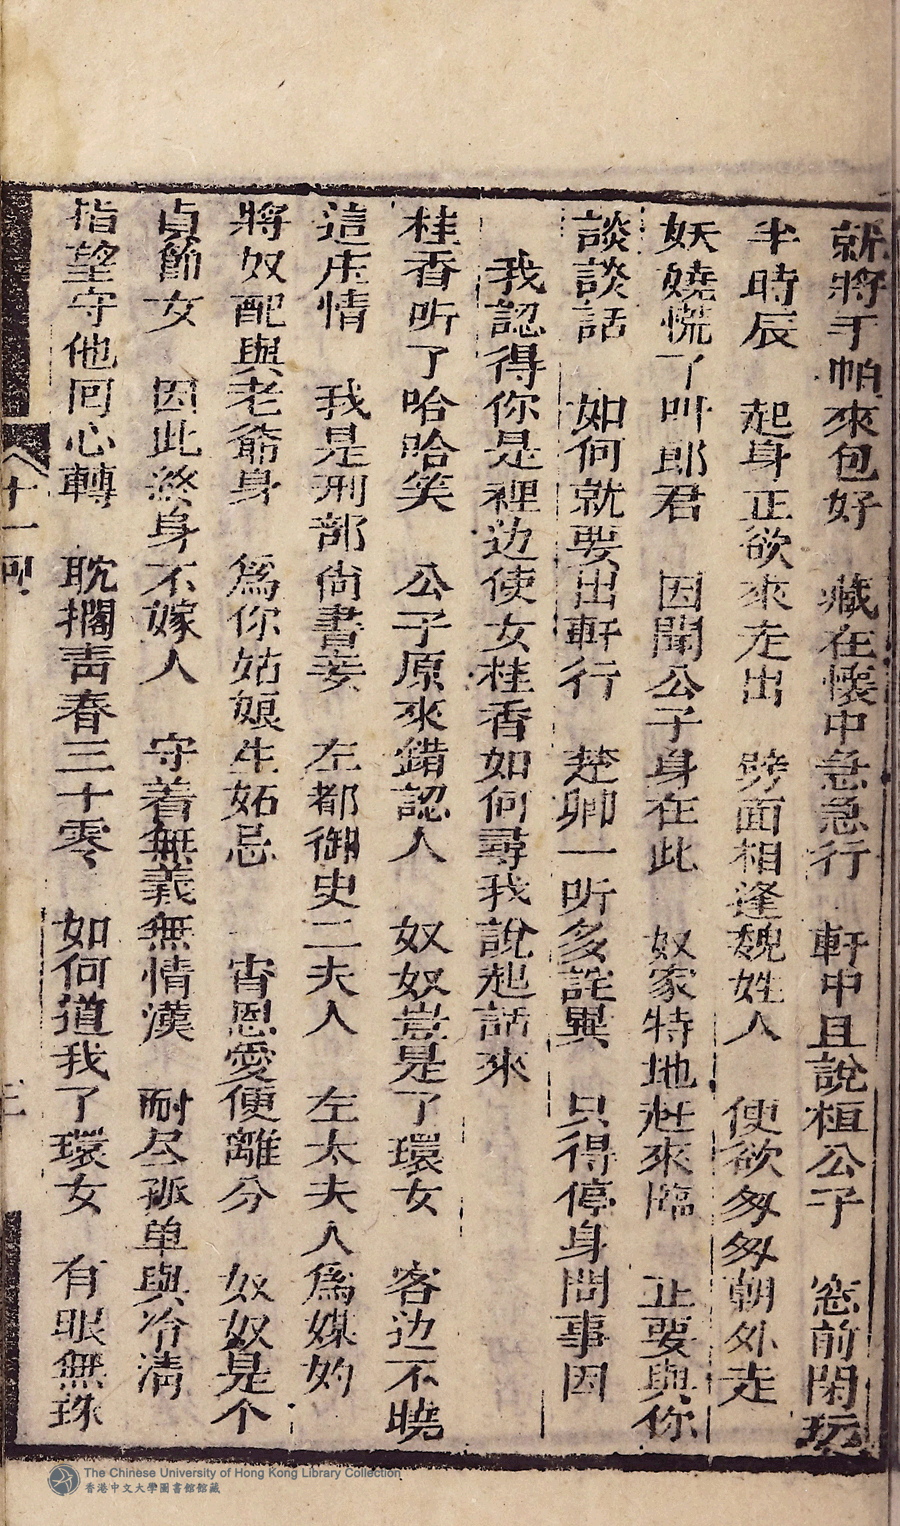 就將手帕來包好　藏在懷中急急行　軒中且說桓公子　窓前閑玩
半時辰　起身正欲來走出　劈面相逢魏姓人　便欲匆匆朝外走
妖嬈慌了叫郎君　因聞公子身在此　奴家特地赶來臨　止要與你
談談話　如何就要出軒行　楚卿一听多詫異　只得停身問事因
我認得你是裡边使女桂香如何尋我說起話來
桂香听了哈哈笑　公子原來錯認人　奴奴豈是了環女　客边不曉
這庄情　我是刑部尙書妾　左都御史二夫人　左太夫人爲媒妁
將奴配與老爺身　爲你姑娘生妬忌　一宵恩愛便離分　奴奴是个
貞節女　因此終身不嫁人　守着無義無情漢　耐尽孤单與冷清
指望守他囘心轉　耽擱靑春三十零　如何道我了環女　有眼無珠
十一囘
三
The Chinese University of Hong Kong Library Collection
香港中文大學圖書館館藏